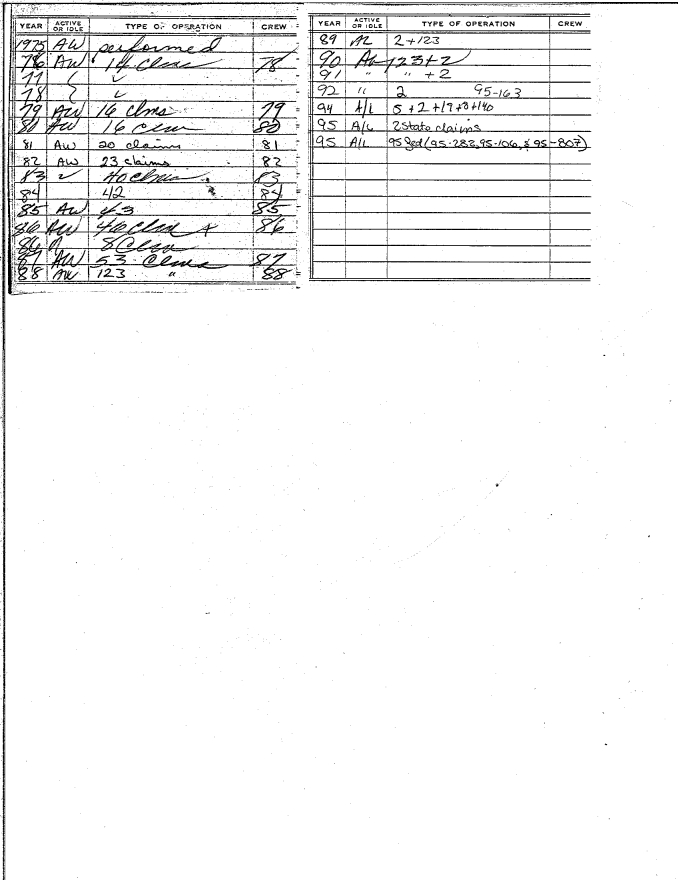 YEAR ACTIVE OR IDLE TYPE OF OPERATION CREW
1975 AW performed
76 AW 14 Clms 78
77 "
78 "
79 AW 16 Clms 79
80 AW 16 Clms 80
81 AW 20 claims 81
82 AW 23 claims 82
83 40 Clms 83
84 42 84
85 AW 43 85
86 AW 46 Clms + 86
86 8 Clms
87 AW 53 Clms 87
88 AW 123 " 88
YEAR ACTIVE OR IDLE TYPE OF OPERATION CREW
89 2+123
90 123+2
91 " " +2
92 " 2 95-163
94 A/L 5+2+19+8+140
95 A/L 2 State claims
95 A/L 95 Fed (95-282, 95-106, & 95-807)